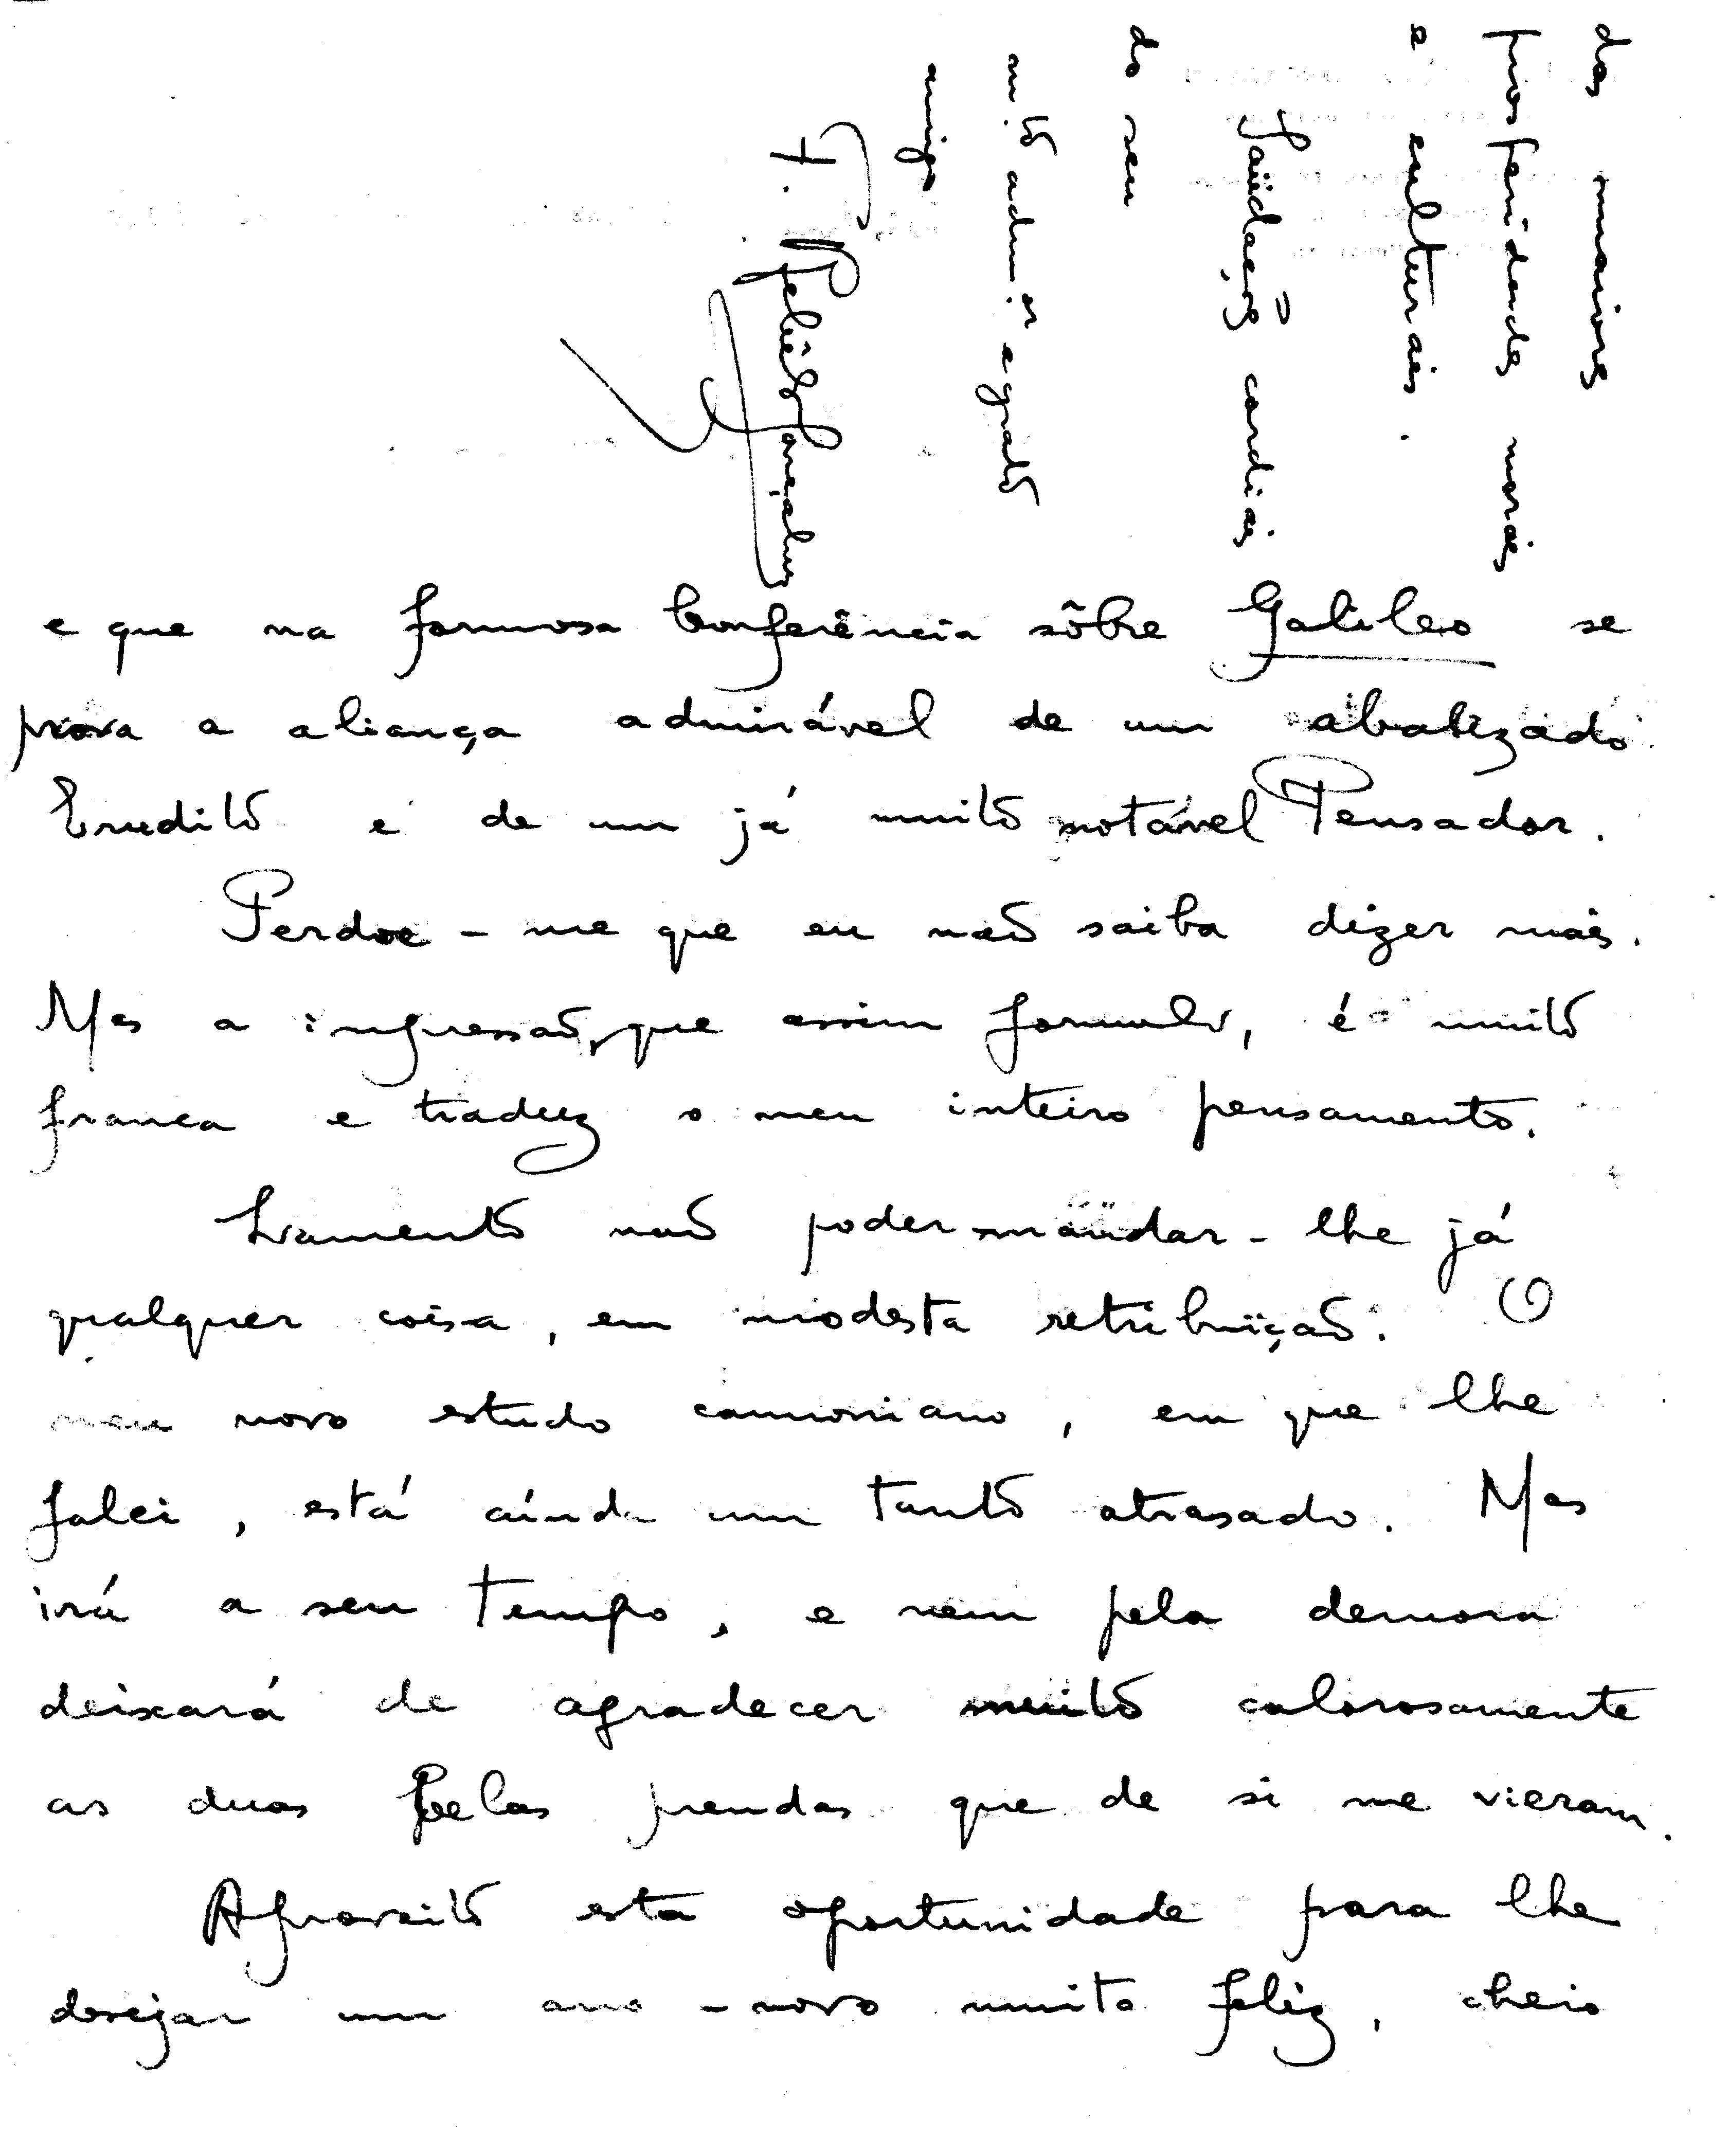 e que na formosa Conferência sôbre Galileo se
prova a aliança admirável de um abalizado
Erudito e de um já muito notável Pensador.
Perdoe-me que eu não saiba dizer mais.
Mas a impressão, que assim formulo, é muito
franca e traduz o meu inteiro pensamento.
Lamento não poder mandar-lhe já
qualquer coisa, em modesta retribuïção. O
meu novo estudo camoniano, em que lhe
falei, está aínda um tanto atrasado. Mas
irá a seu tempo, e nem pela demora
deixará de agradecer muito calorosamente
as duas belas prendas que de si me vieram.
Aproveito esta oportunidade para lhe
desejar um ano-novo muito feliz, cheio
das maiores
prosperidades morais
e culturais.
Saüdações cordiais
do seu
m.to adm.or e grato
amigo
F. Rebêlo Gonçalves